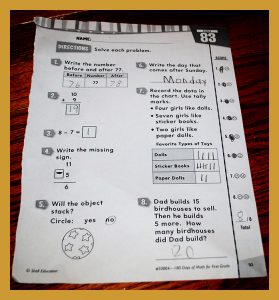 83
NAME:
DIRECTIONS Solve each problem.
1. Write the number
before and after 77.
Before Number After
76 77 78
2. 10
+ 9
19
3. 8 - 7 = 1
4. Write the missing
sign.
11
5
6
5. Will the object
stack?
Circle: yes no
6. Write the day that
comes after Sunday.
Monday
7. Record the data in
the chart. Use tally
marks.
• Four girls like dolls.
• Seven girls like
sticker books.
• Two girls like
paper dolls.
Favorite Types of Toys
Dolls
Sticker Books
Paper Dolls
8. Dad builds 15
birdhouses to sell.
Then he builds
5 more. How
many birdhouses
did Dad build?
20
SCORE
1.
2.
3.
4.
5.
6.
7.
8.
8
Total
© Shell Education
#50804—180 Days of Math for First Grade
93